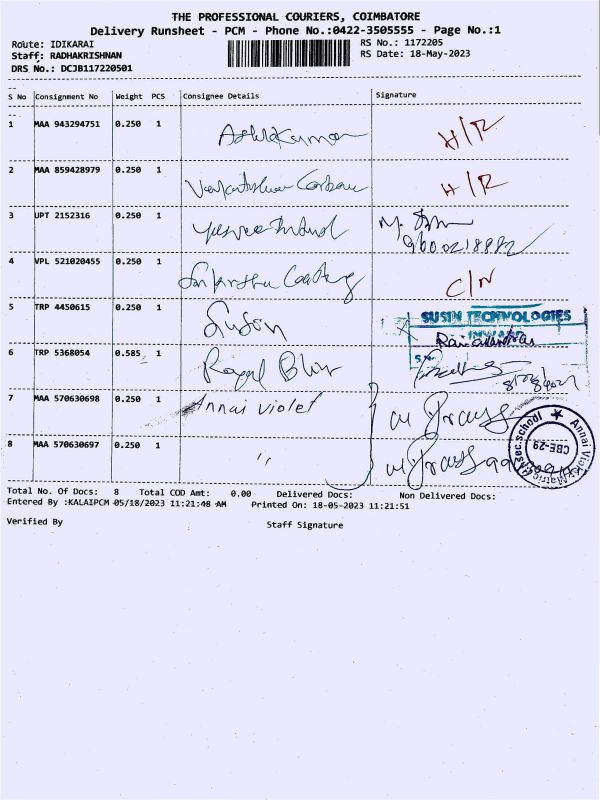 THE PROFESSIONAL COURIERS, COIMBATORE
Delivery Runsheet - PCM - Phone No.:0422-3505555 - Page No.:1
Route: IDIKARAI
RS No.: 1172205
Staff: RADHAKRISHNAN
RS Date: 18-May-2023
DRS No.: DCJB117220501
S No Consignment No Weight PCS Consignee Details Signature
1 MAA 943294751 0.250 1 H/R
2 MAA 859428979 0.250 1 H/R
3 UPT 2152316 0.250 1
4 VPL 521020455 0.250 1 C/N
5 TRP 4450615 0.250 1 Susin
SUSIN TECHNOLOGIES
INWARD
6 TRP 5368054 0.585 1 Royal
7 MAA 570630698 0.250 1 Annai violet
8 MAA 570630697 0.250 1 ,,
Annai Violet Matric Hr.sec.school
CBE-29
Total No. Of Docs: 8 Total COD Amt: 0.00 Delivered Docs: Non Delivered Docs:
Entered By :KALAIPCM 05/18/2023 11:21:48 AM Printed On: 18-05-2023 11:21:51
Verified By Staff Signature